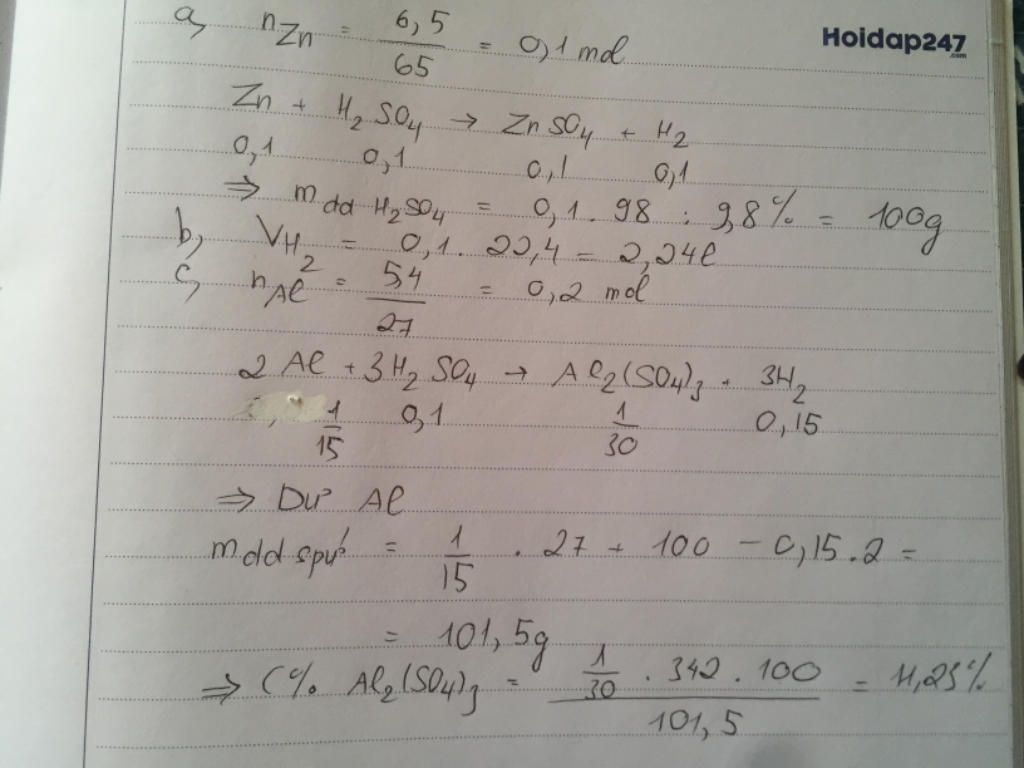 Hoidap247
.com
a, nZn = 6,5/65 = 0,1 mol
Zn + H₂SO₄ → ZnSO₄ + H₂
0,1 0,1 0,1 0,1
⇒ mdd H₂SO₄ = 0,1 . 98 : 9,8% = 100g
b, VH₂ = 0,1 . 22,4 = 2,24l
c, nAl = 5,4/27 = 0,2 mol
2Al + 3H₂SO₄ → Al₂(SO₄)₃ + 3H₂
1/15 0,1 1/30 0,15
⇒ Dư Al
mdd spứ = 1/15 . 27 + 100 - 0,15.2 =
= 101,5g
⇒ C% Al₂(SO₄)₃ = 1/30 . 342 . 100 / 101,5 = 11,23%